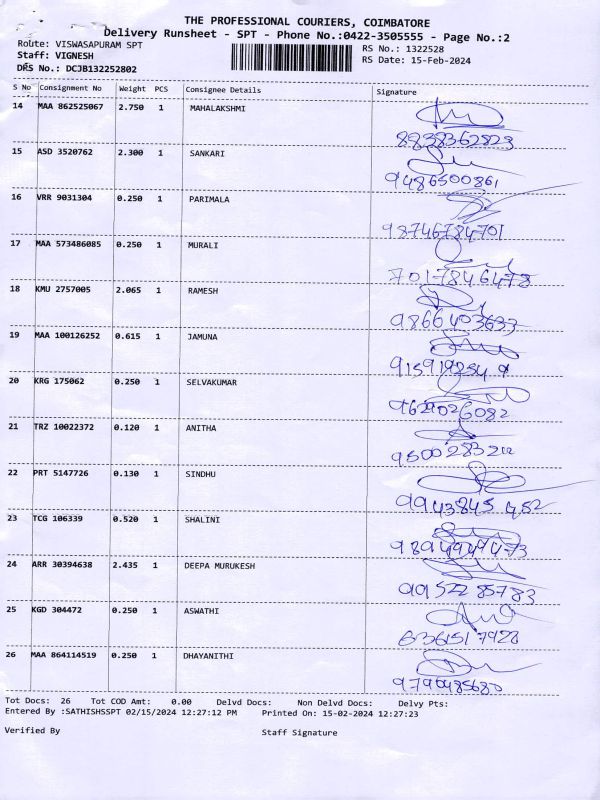 THE PROFESSIONAL COURIERS, COIMBATORE
Delivery Runsheet - SPT - Phone No.:0422-3505555 - Page No.:2
Route: VISWASAPURAM SPT
Staff: VIGNESH
DRS No.: DCJB132252802
RS No.: 1322528
RS Date: 15-Feb-2024
S No Consignment No Weight PCS Consignee Details Signature
14 MAA 862525067 2.750 1 MAHALAKSHMI
8838362823
15 ASD 3520762 2.300 1 SANKARI
9486500861
16 VRR 9031304 0.250 1 PARIMALA
98746784701
17 MAA 573486085 0.250 1 MURALI
7017846478
18 KMU 2757005 2.065 1 RAMESH
9866403633
19 MAA 100126252 0.615 1 JAMUNA
20 KRG 175062 0.250 1 SELVAKUMAR
9629026082
21 TRZ 10022372 0.120 1 ANITHA
22 PRT 5147726 0.130 1 SINDHU
9943845 452
23 TCG 106339 0.520 1 SHALINI
24 ARR 30394638 2.435 1 DEEPA MURUKESH
25 KGD 304472 0.250 1 ASWATHI
26 MAA 864114519 0.250 1 DHAYANITHI
9790485680
Tot Docs: 26 Tot COD Amt: 0.00 Delvd Docs: Non Delvd Docs: Delvy Pts:
Entered By :SATHISHSSPT 02/15/2024 12:27:12 PM Printed On: 15-02-2024 12:27:23
Verified By Staff Signature